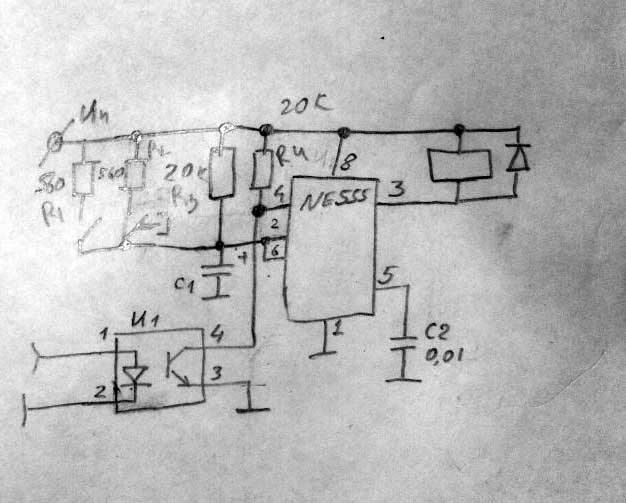 Uп
20К
R2
560
20к
R3
R4
R1
8
4
NE555
3
2
6
+
C1
5
1
C2
0,01
U1
1
4
2
3